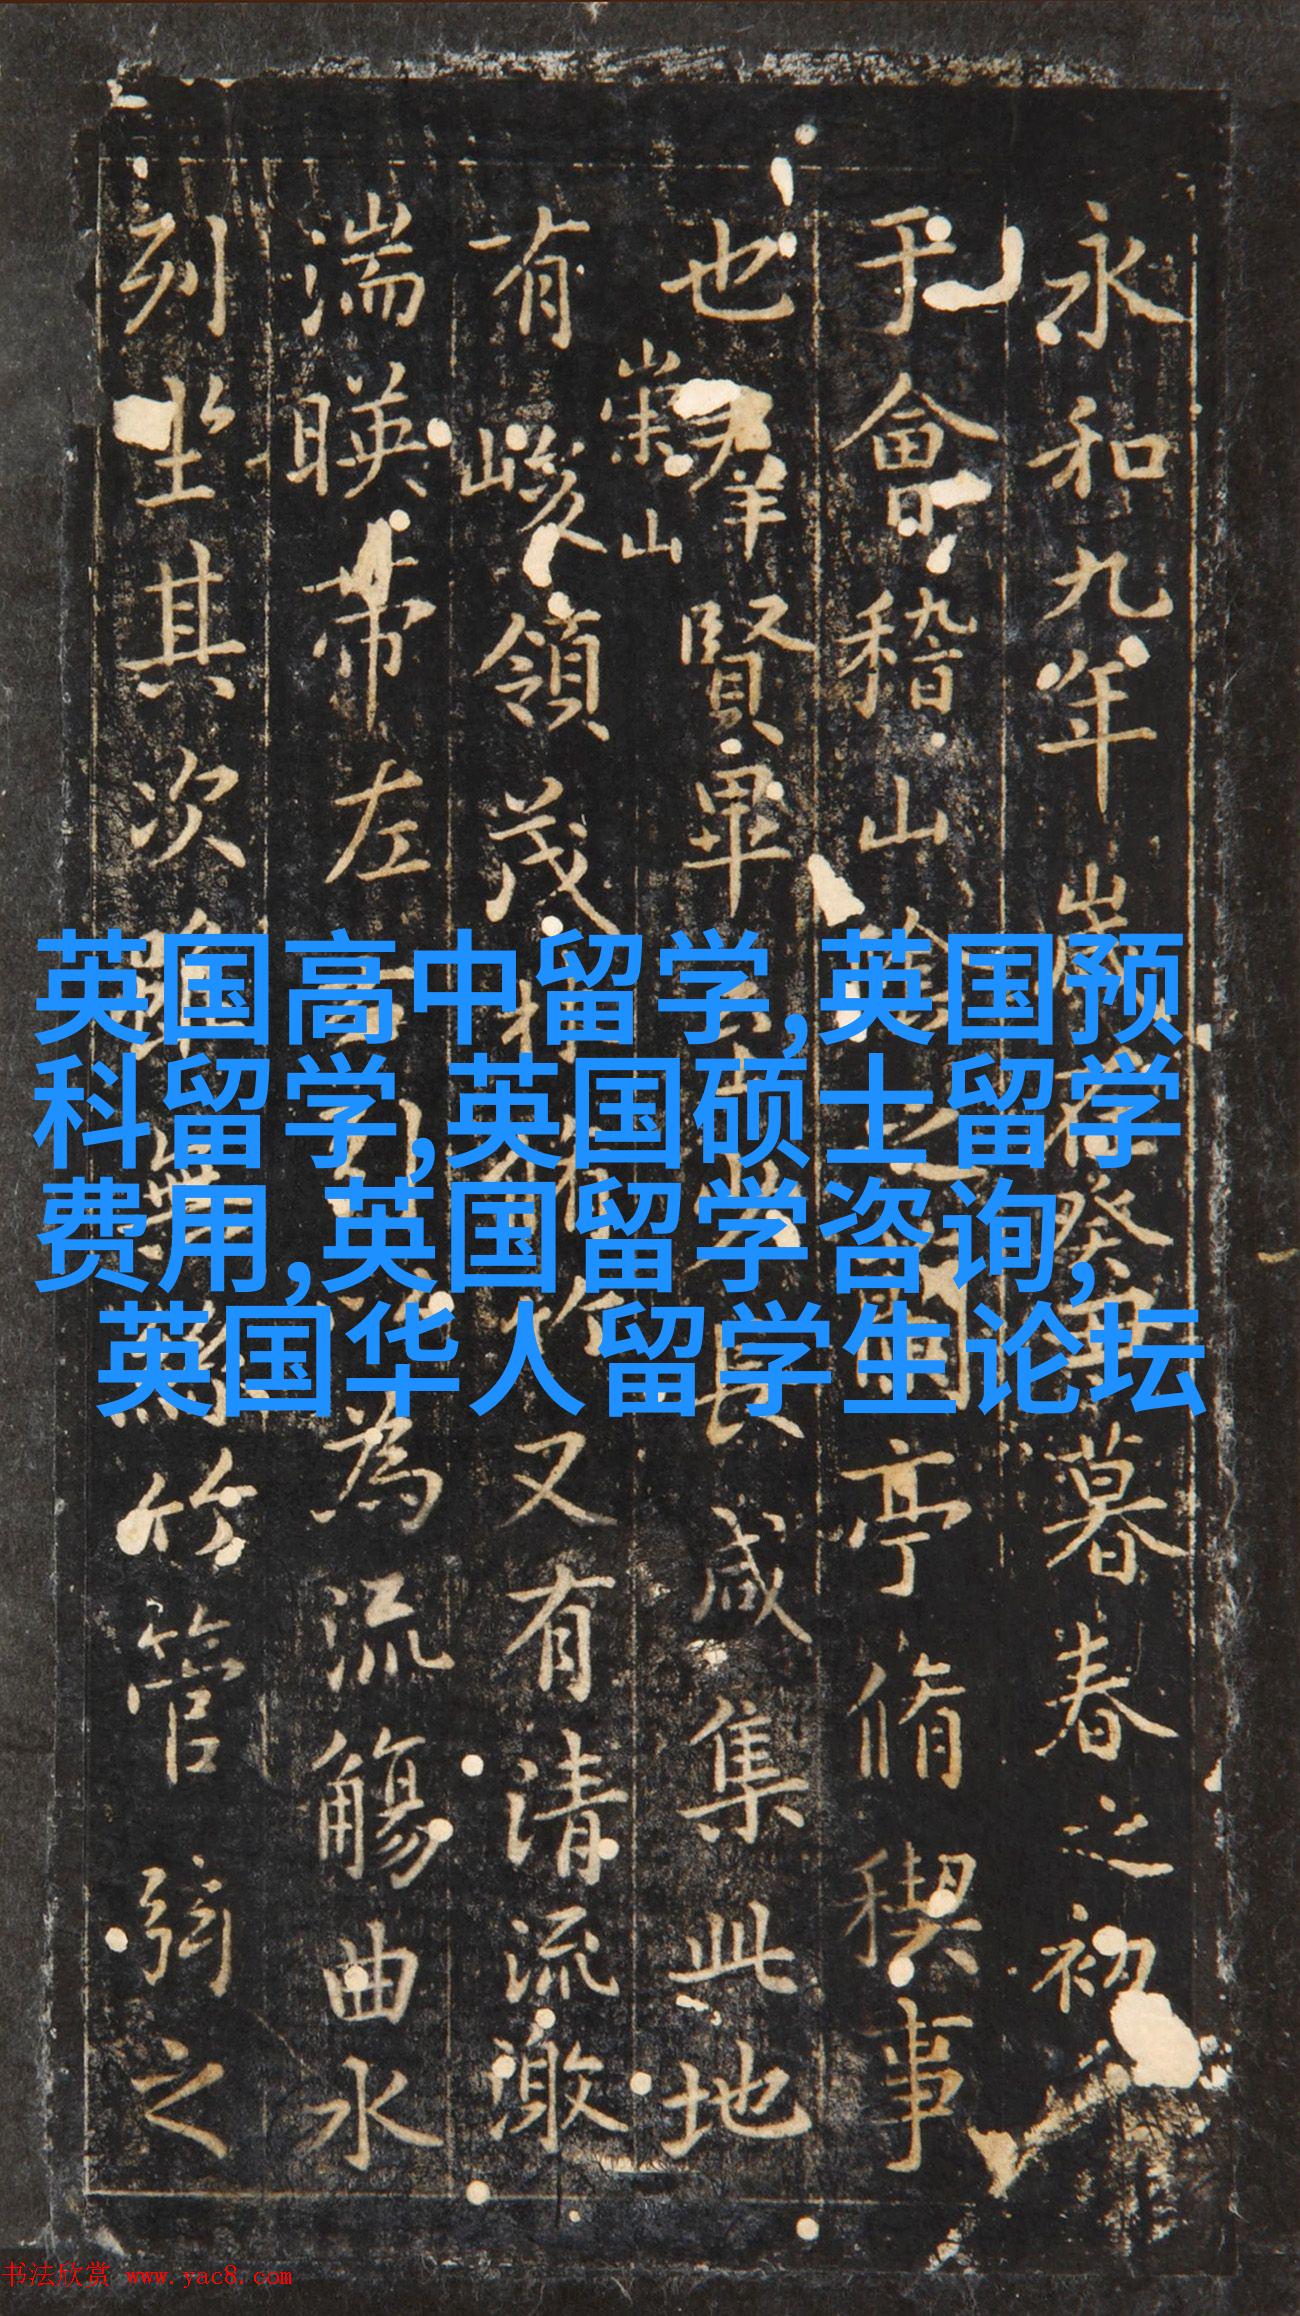 永和九年歲在癸丑暮春之初
于會稽山陰之蘭亭脩稧事
也羣賢畢至少長咸集此地
有崇山峻領茂林脩竹又有清流激
湍暎帶左右引以為流觴曲水
列坐其次雖無絲竹管弦之
英国高中留学,英国预
科留学,英国硕士留学
费用,英国留学咨询,
英国华人留学生论坛
书法欣赏 www.yac8.com